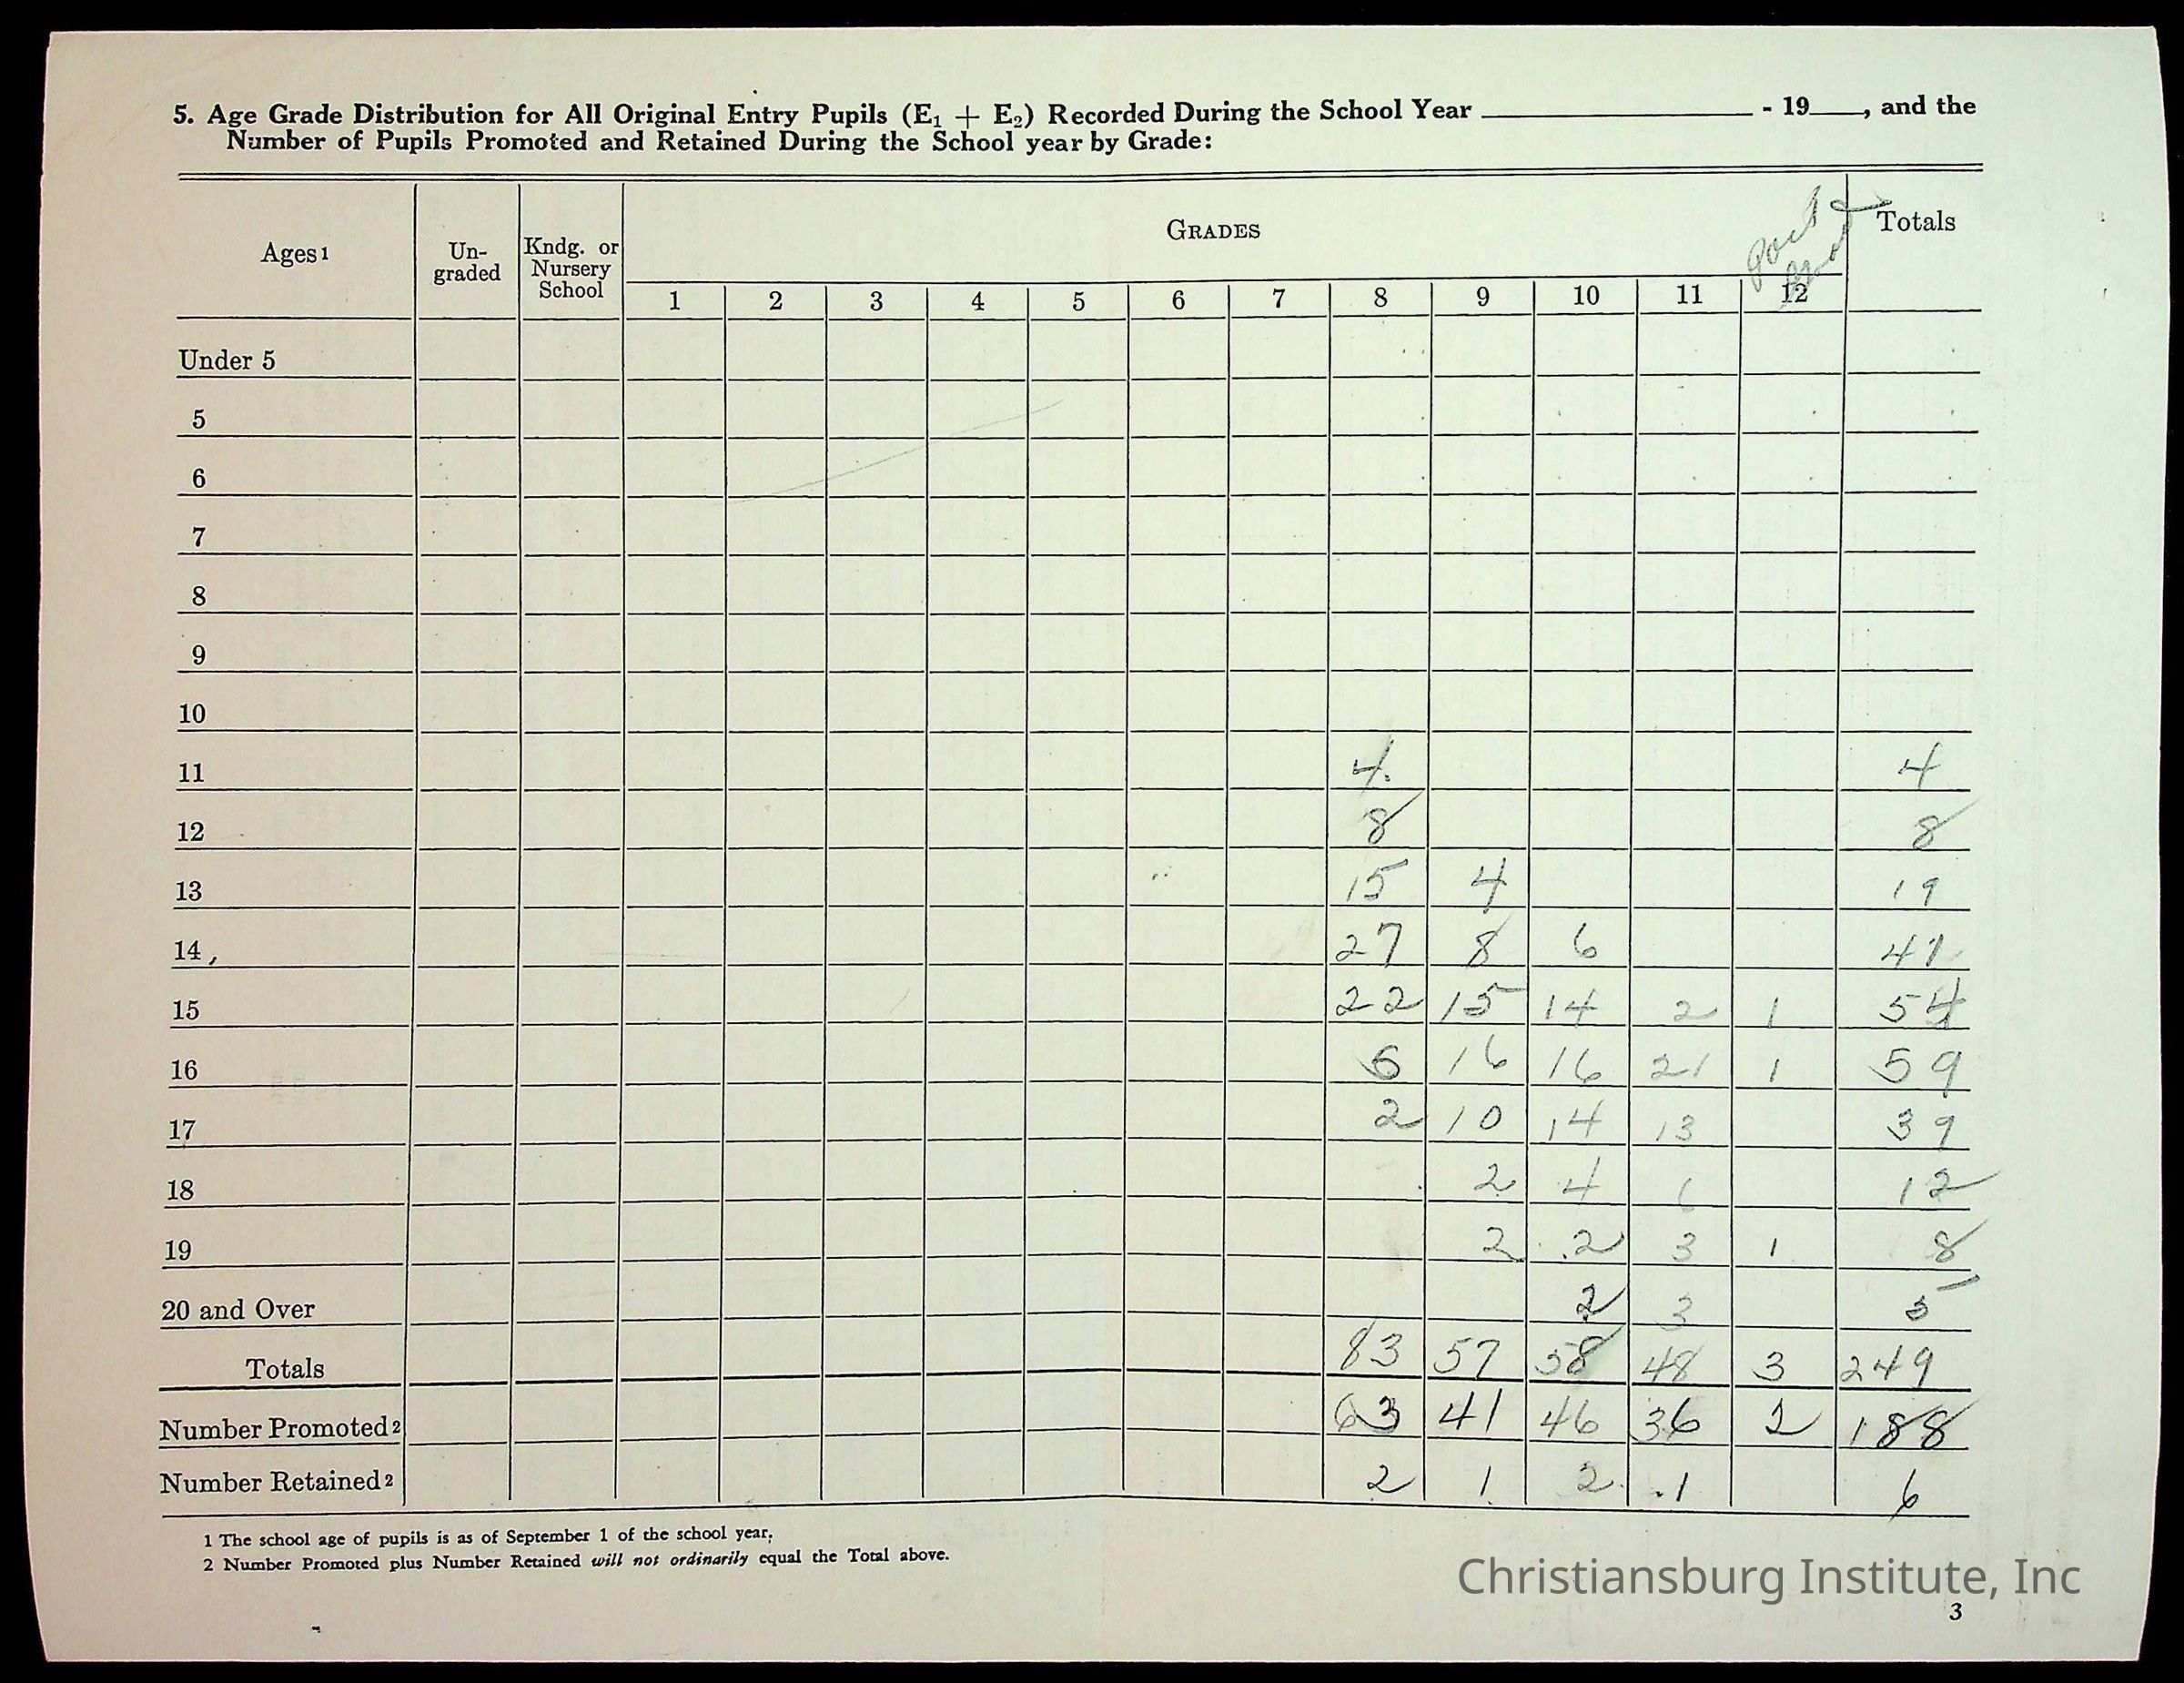 5. Age Grade Distribution for All Original Entry Pupils (E1 + E2) Recorded During the School Year ____ - 19__, and the
Number of Pupils Promoted and Retained During the School year by Grade:
Ages 1 Un-graded Kndg. or Nursery School GRADES Post Grad Totals
1 2 3 4 5 6 7 8 9 10 11 12
Under 5
5
6
7
8
9
10
11 4 4
12 8 8
13 15 4 19
14, 27 8 6 41
15 22 15 14 2 1 54
16 6 16 16 21 1 59
17 2 10 14 13 39
18 2 4 6 12
19 2 2 3 1 8
20 and Over 2 3 5
Totals 83 57 58 48 3 249
Number Promoted 2 63 41 46 36 2 188
Number Retained 2 2 1 2 1 6
1 The school age of pupils is as of September 1 of the school year.
2 Number Promoted plus Number Retained will not ordinarily equal the Total above.
Christiansburg Institute, Inc
3